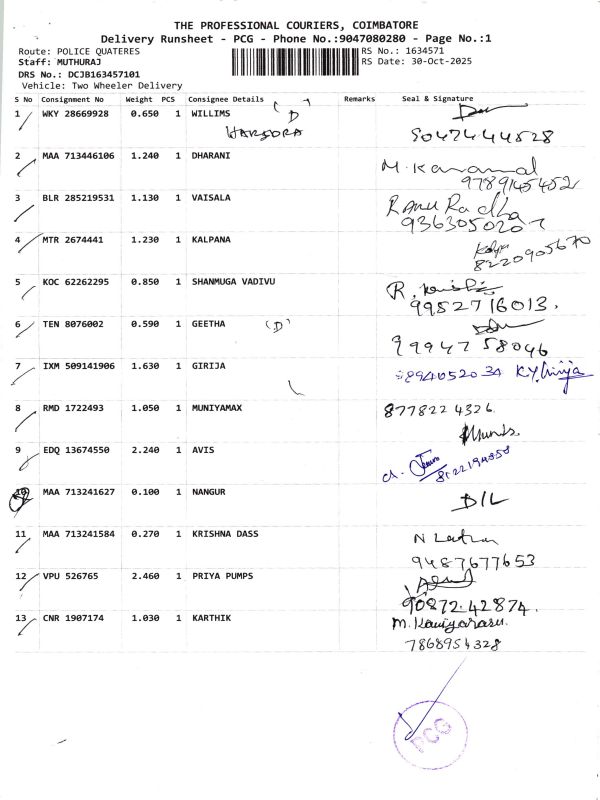 THE PROFESSIONAL COURIERS, COIMBATORE
Delivery Runsheet - PCG - Phone No.:9047080280 - Page No.:1
Route: POLICE QUATERES
RS No.: 1634571
Staff: MUTHURAJ
RS Date: 30-Oct-2025
DRS No.: DCJB163457101
Vehicle: Two Wheeler Delivery
S No Consignment No Weight PCS Consignee Details Remarks Seal & Signature
1 WKY 28669928 0.650 1 WILLIMS (D
9047444528
2 MAA 713446106 1.240 1 DHARANI
9789145452
3 BLR 285219531 1.130 1 VAISALA Radha
9363050207
4 MTR 2674441 1.230 1 KALPANA
8220905670
5 KOC 62262295 0.850 1 SHANMUGA VADIVU R.
9952716013.
6 TEN 8076002 0.590 1 GEETHA (D)
99947 58046
7 IXM 509141906 1.630 1 GIRIJA 8940520 34 K.Y. Girija
8 RMD 1722493 1.050 1 MUNIYAMAX 8778224326
9 EDQ 13674550 2.240 1 AVIS
10 MAA 713241627 0.100 1 NANGUR D/L
11 MAA 713241584 0.270 1 KRISHNA DASS N
9487677653
12 VPU 526765 2.460 1 PRIYA PUMPS
90872.42874.
13 CNR 1907174 1.030 1 KARTHIK M. Kaviyarasu.
7868954328
PCG